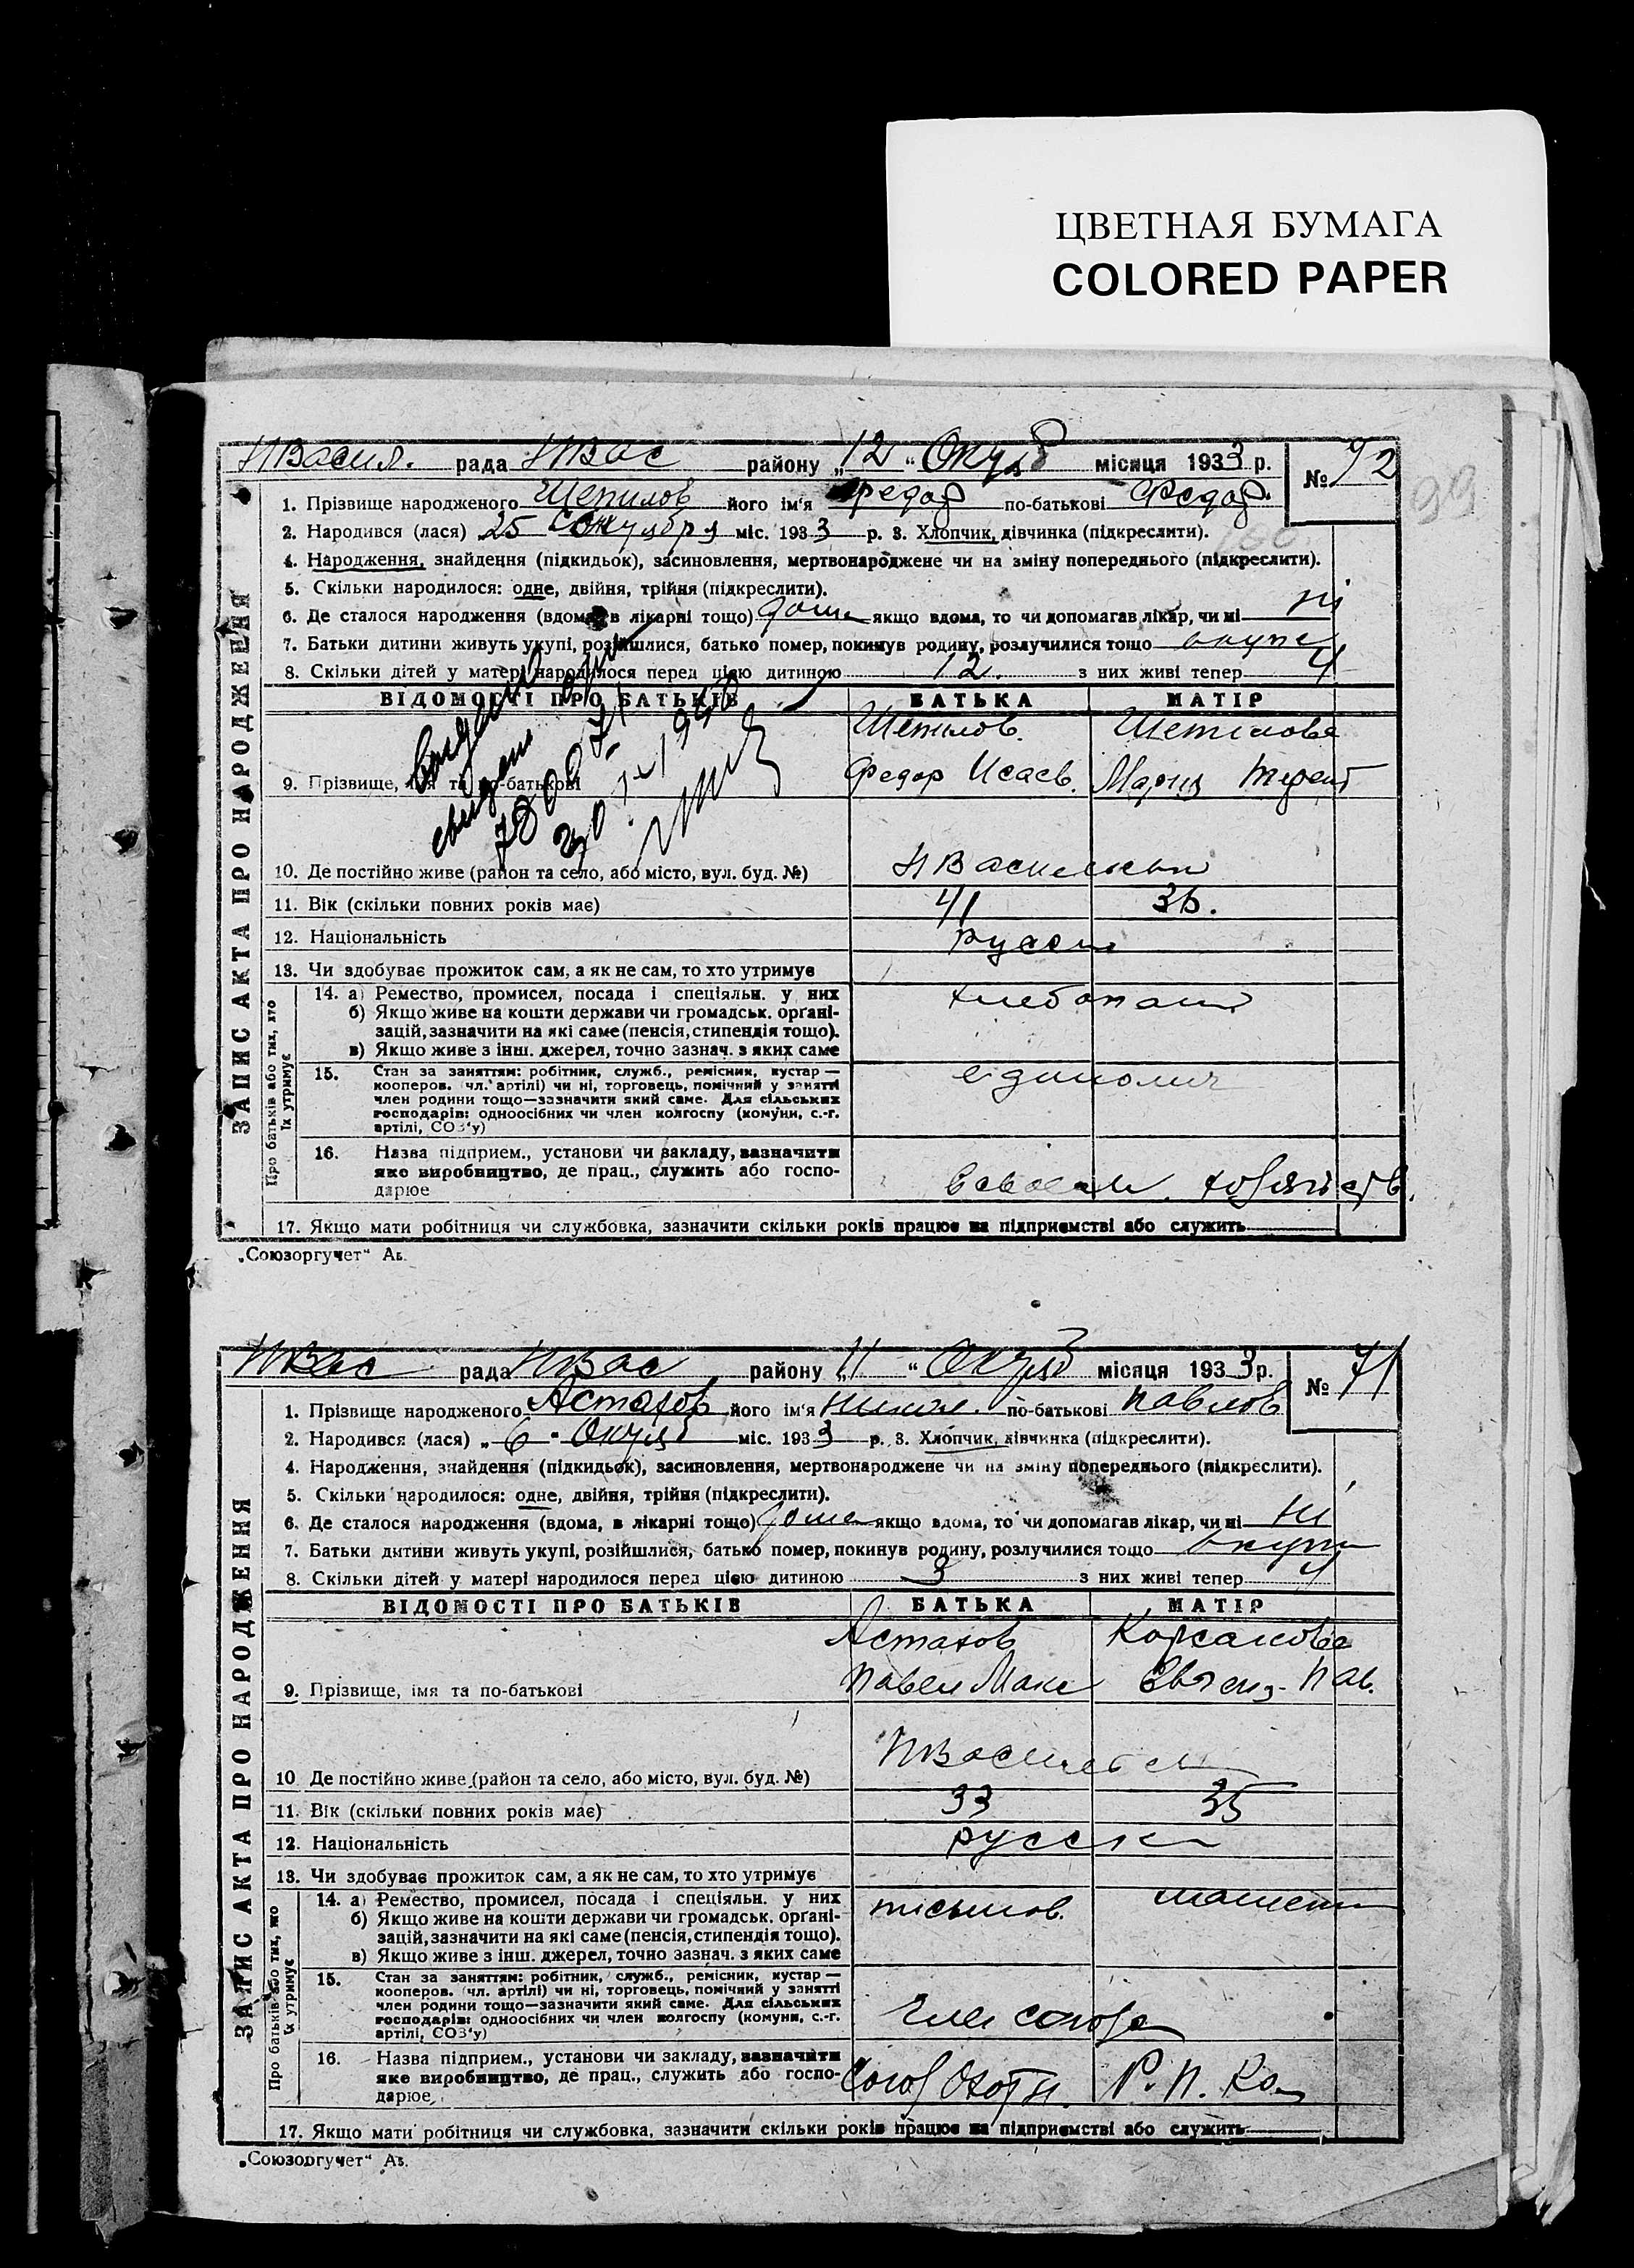 ЦВЕТНАЯ БУМАГА
COLORED PAPER
НВасил. рада НВас району „12“ Окуяб місяця 1933 р. № 72
99
1. Прізвище народженого Щепилов його ім'я Федор по-батькові Федор.
2. Народився (лася) 25 міс. 1933 р. 3. Хлопчик, дівчинка (підкреслити).
4. Народження, знайдення (підкидьок), засиновлення, мертвонароджене чи на зміну попереднього (підкреслити).
5. Скільки народилося: одне, двійня, трійня (підкреслити).
6. Де сталося народження (вдома, в лікарні тощо) дома якщо вдома, то чи допомагав лікар, чи ні ні
7. Батьки дитини живуть укупі, розійшлися, батько помер, покинув родину, розлучилися тощо вкупе
8. Скільки дітей у матері народилося перед цією дитиною 12. з них живі тепер 4
ВІДОМОСТІ ПРО БАТЬКІВ БАТЬКА МАТІР
Щепилов. Щепилова
9. Прізвище, імя та по-батькові Федор Исаев. Мария Терент
10. Де постійно живе (район та село, або місто, вул. буд. №) НВасильевки
11. Вік (скільки повних років має) 41 36.
12. Національність русски
13. Чи здобуває прожиток сам, а як не сам, то хто утримує
14. а) Ремество, промисел, посада і спеціяльн. у них хлебопаш
б) Якщо живе на кошти держави чи громадськ. орґані-
зацій, зазначити на які саме (пенсія, стипендія тощо).
в) Якщо живе з інш. джерел, точно зазнач. з яких саме
15. Стан за заняттям: робітник, служб., ремісник, кустар — единолич
кооперов. (чл. артілі) чи ні, торговець, помічний у занятті
член родини тощо—зазначити який саме. Для сільських
господарів: одноосібних чи член колгоспу (комуни, с.-г.
артілі, СОЗ'у)
16. Назва підприєм., установи чи закладу, зазначити
яке виробництво, де прац., служить або госпо-
дарює в своем. хозяйств.
17. Якщо мати робітниця чи службовка, зазначити скільки років працює на підприємстві або служить
ЗАПИС АКТА ПРО НАРОДЖЕННЯ
Про батьків або тих, хто
їх утримує
„Союзоргучет“
НВас рада НВас району „11“ Окуяб місяця 1933 р. № 71
1. Прізвище народженого Астахов його ім'я Никол. по-батькові Павлов
2. Народився (лася) „6“ Окуяб міс. 1933 р. 3. Хлопчик, дівчинка (підкреслити).
4. Народження, знайдення (підкидьок), засиновлення, мертвонароджене чи на зміну попереднього (підкреслити).
5. Скільки народилося: одне, двійня, трійня (підкреслити).
6. Де сталося народження (вдома, в лікарні тощо) дома якщо вдома, то чи допомагав лікар, чи ні ні
7. Батьки дитини живуть укупі, розійшлися, батько помер, покинув родину, розлучилися тощо вкупи
8. Скільки дітей у матері народилося перед цією дитиною 3 з них живі тепер 4
ВІДОМОСТІ ПРО БАТЬКІВ БАТЬКА МАТІР
Астахов Корсакова
9. Прізвище, імя та по-батькові Павел Макс Евгень. Пав.
10 Де постійно живе (район та село, або місто, вул. буд. №) НВасильевк
11. Вік (скільки повних років має) 33 35
12. Національність русски
13. Чи здобуває прожиток сам, а як не сам, то хто утримує
14. а) Ремество, промисел, посада і спеціяльн. у них письмов.
б) Якщо живе на кошти держави чи громадськ. орґані-
зацій, зазначити на які саме (пенсія, стипендія тощо).
в) Якщо живе з інш. джерел, точно зазнач. з яких саме
15. Стан за заняттям: робітник, служб., ремісник, кустар —
кооперов. (чл. артілі) чи ні, торговець, помічний у занятті
член родини тощо—зазначити який саме. Для сільських
господарів: одноосібних чи член колгоспу (комуни, с.-г. Член союза
артілі, СОЗ'у)
16. Назва підприєм., установи чи закладу, зазначити
яке виробництво, де прац., служить або госпо- Союз Охотн. Р. П. К.
дарює
17. Якщо мати робітниця чи службовка, зазначити скільки років працює на підприємстві або служить
ЗАПИС АКТА ПРО НАРОДЖЕННЯ
Про батьків або тих, що
їх утримує
„Союзоргучет“